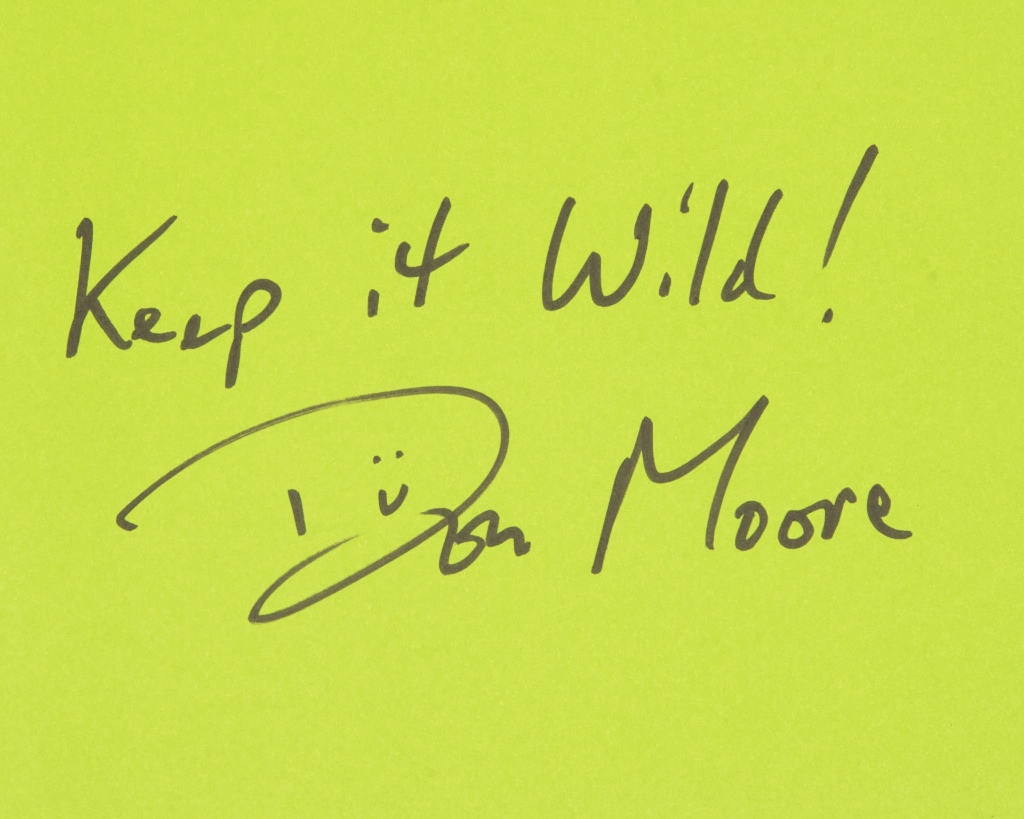 Keep it Wild!
Don Moore